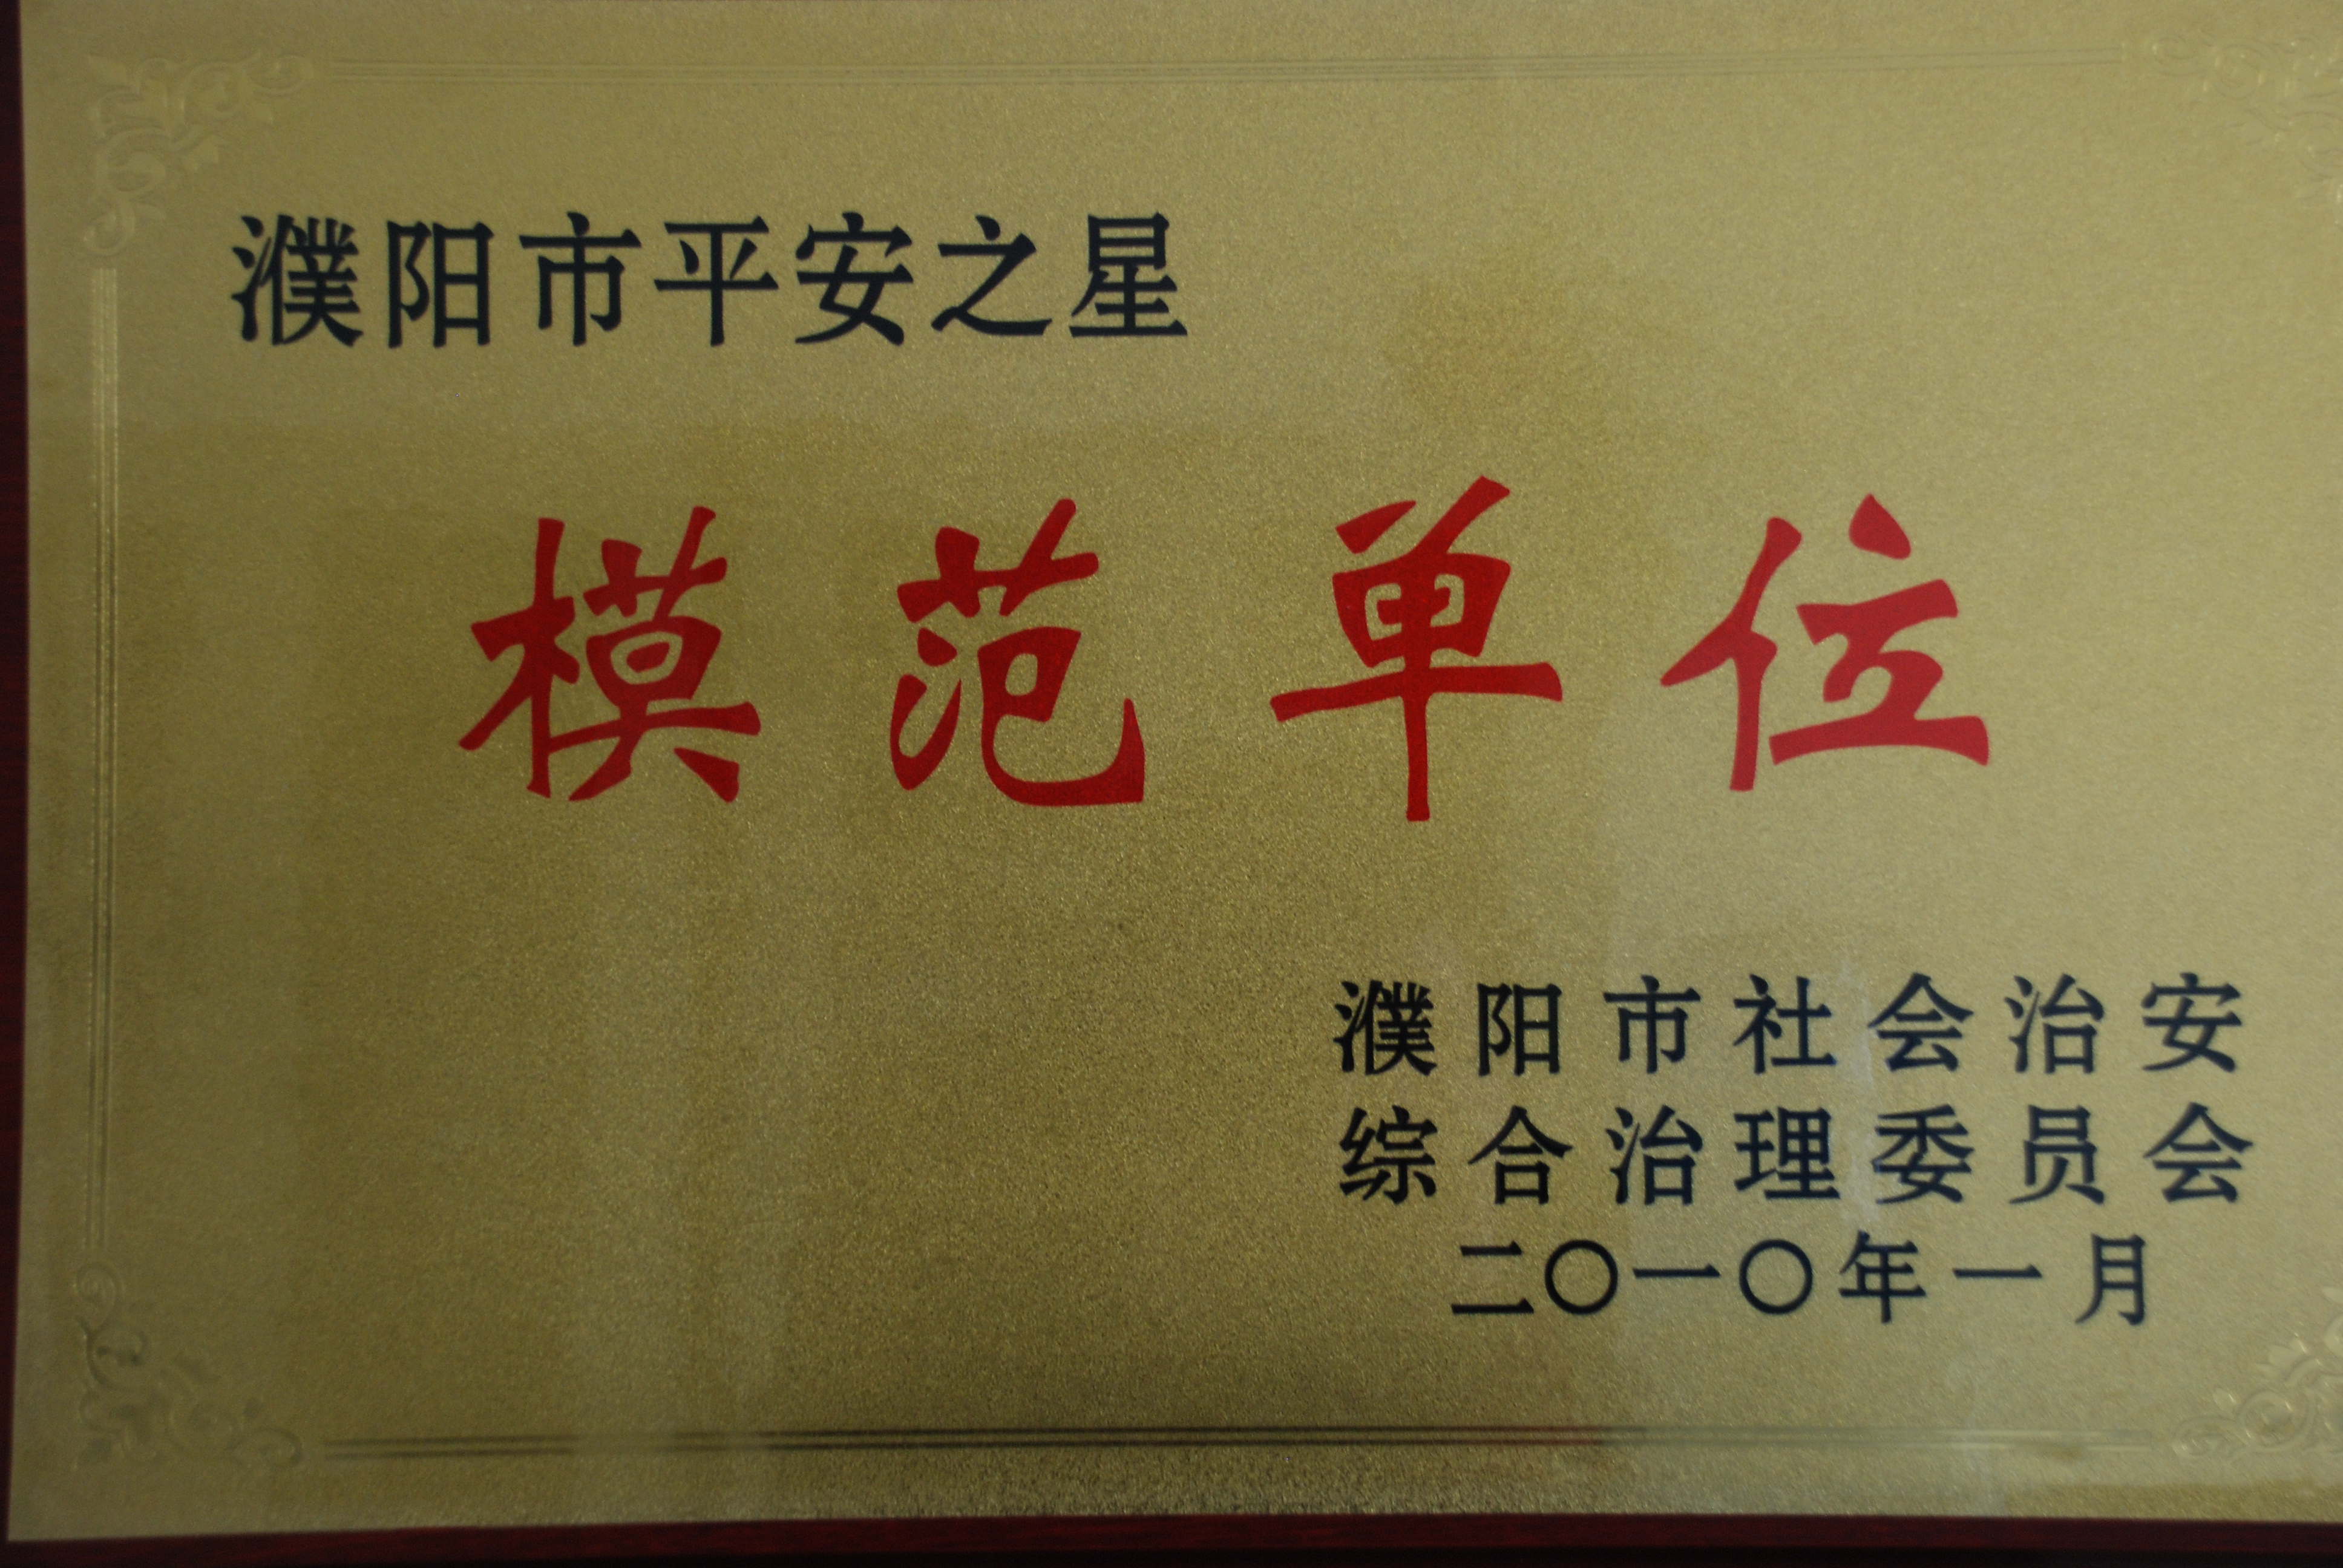 濮阳市平安之星
模范单位
濮阳市社会治安
综合治理委员会
二〇一〇年一月